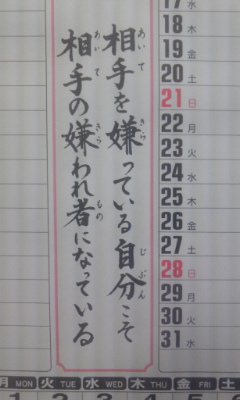 相手を嫌っている自分こそ
あいて きら じぶん
相手の嫌われ者になっている
あいて きら もの
17 水
18 木
19 金
20 土
21 日
22 月
23 火
24 水
25 木
26 金
27 土
28 日
29 月
30 火
31 水
月 MON 火 TUE 水 WED 木 THU 金 FRI 土
1 2 3 4 5 6